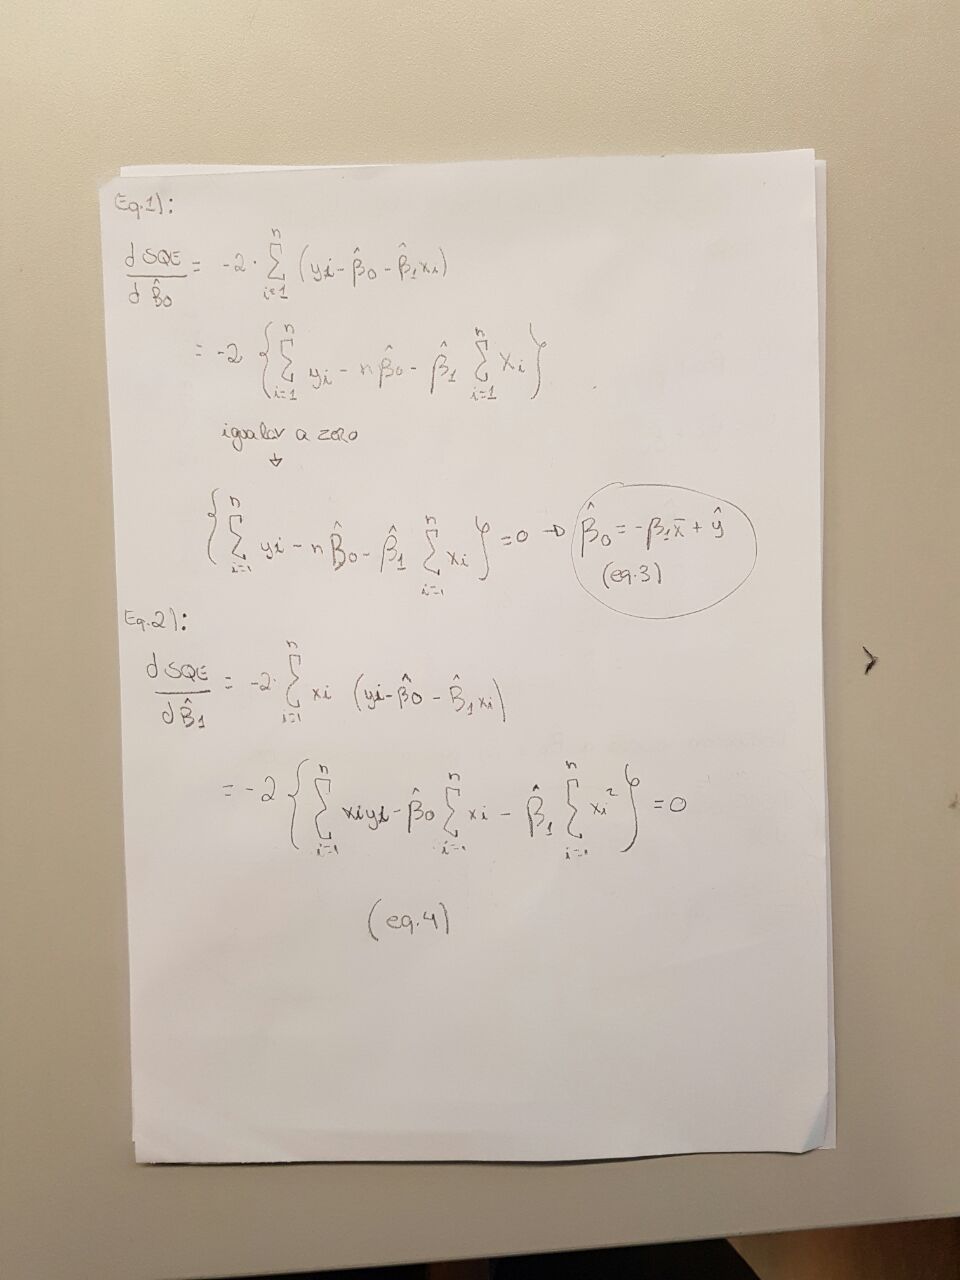 Eq.1):
d SQE / d β̂0 = -2 · Σ_{i=1}^{n} (yi - β̂0 - β̂1 xi)
= -2 { Σ_{i=1}^{n} yi - n β̂0 - β̂1 Σ_{i=1}^{n} xi }
igualar a zero
↓
{ Σ_{i=1}^{n} yi - n β̂0 - β̂1 Σ_{i=1}^{n} xi } = 0 → β̂0 = -β1 x̄ + ŷ
(eq.3)
Eq.2):
d SQE / d β̂1 = -2· Σ_{i=1}^{n} xi (yi - β̂0 - β̂1 xi)
= -2 { Σ_{i=1}^{n} xi yi - β̂0 Σ_{i=1}^{n} xi - β̂1 Σ_{i=1}^{n} xi² } = 0
(eq.4)